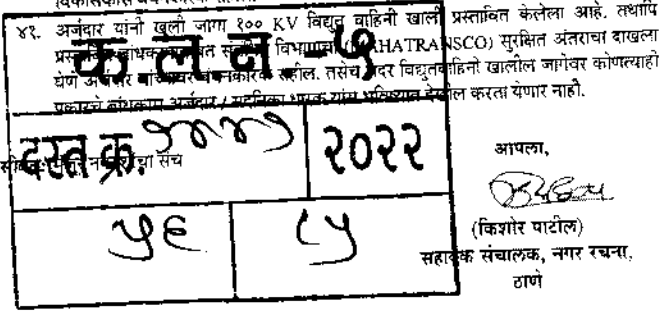 ४१. अर्जदार यांनी खुली जागा १०० KV विद्युत वाहिनी खाली प्रस्तावित केलेला आहे. तथापि
विभागाचा (MAHATRANSCO) सुरक्षित अंतराचा दाखला
घेणे अर्जदार यांच्यावर बंधनकारक राहील. तसेच सदर विद्युतवाहिनी खालील जागेवर कोणत्याही
प्रकारचे बांधकाम अर्जदार / सदनिका धारक यांना भविष्यात देखील करता येणार नाही.
क ल न - ५
दस्त क्र. २०२२
संच
५६ ८५
आपला,
(किशोर पाटील)
सहायक संचालक, नगर रचना,
ठाणे